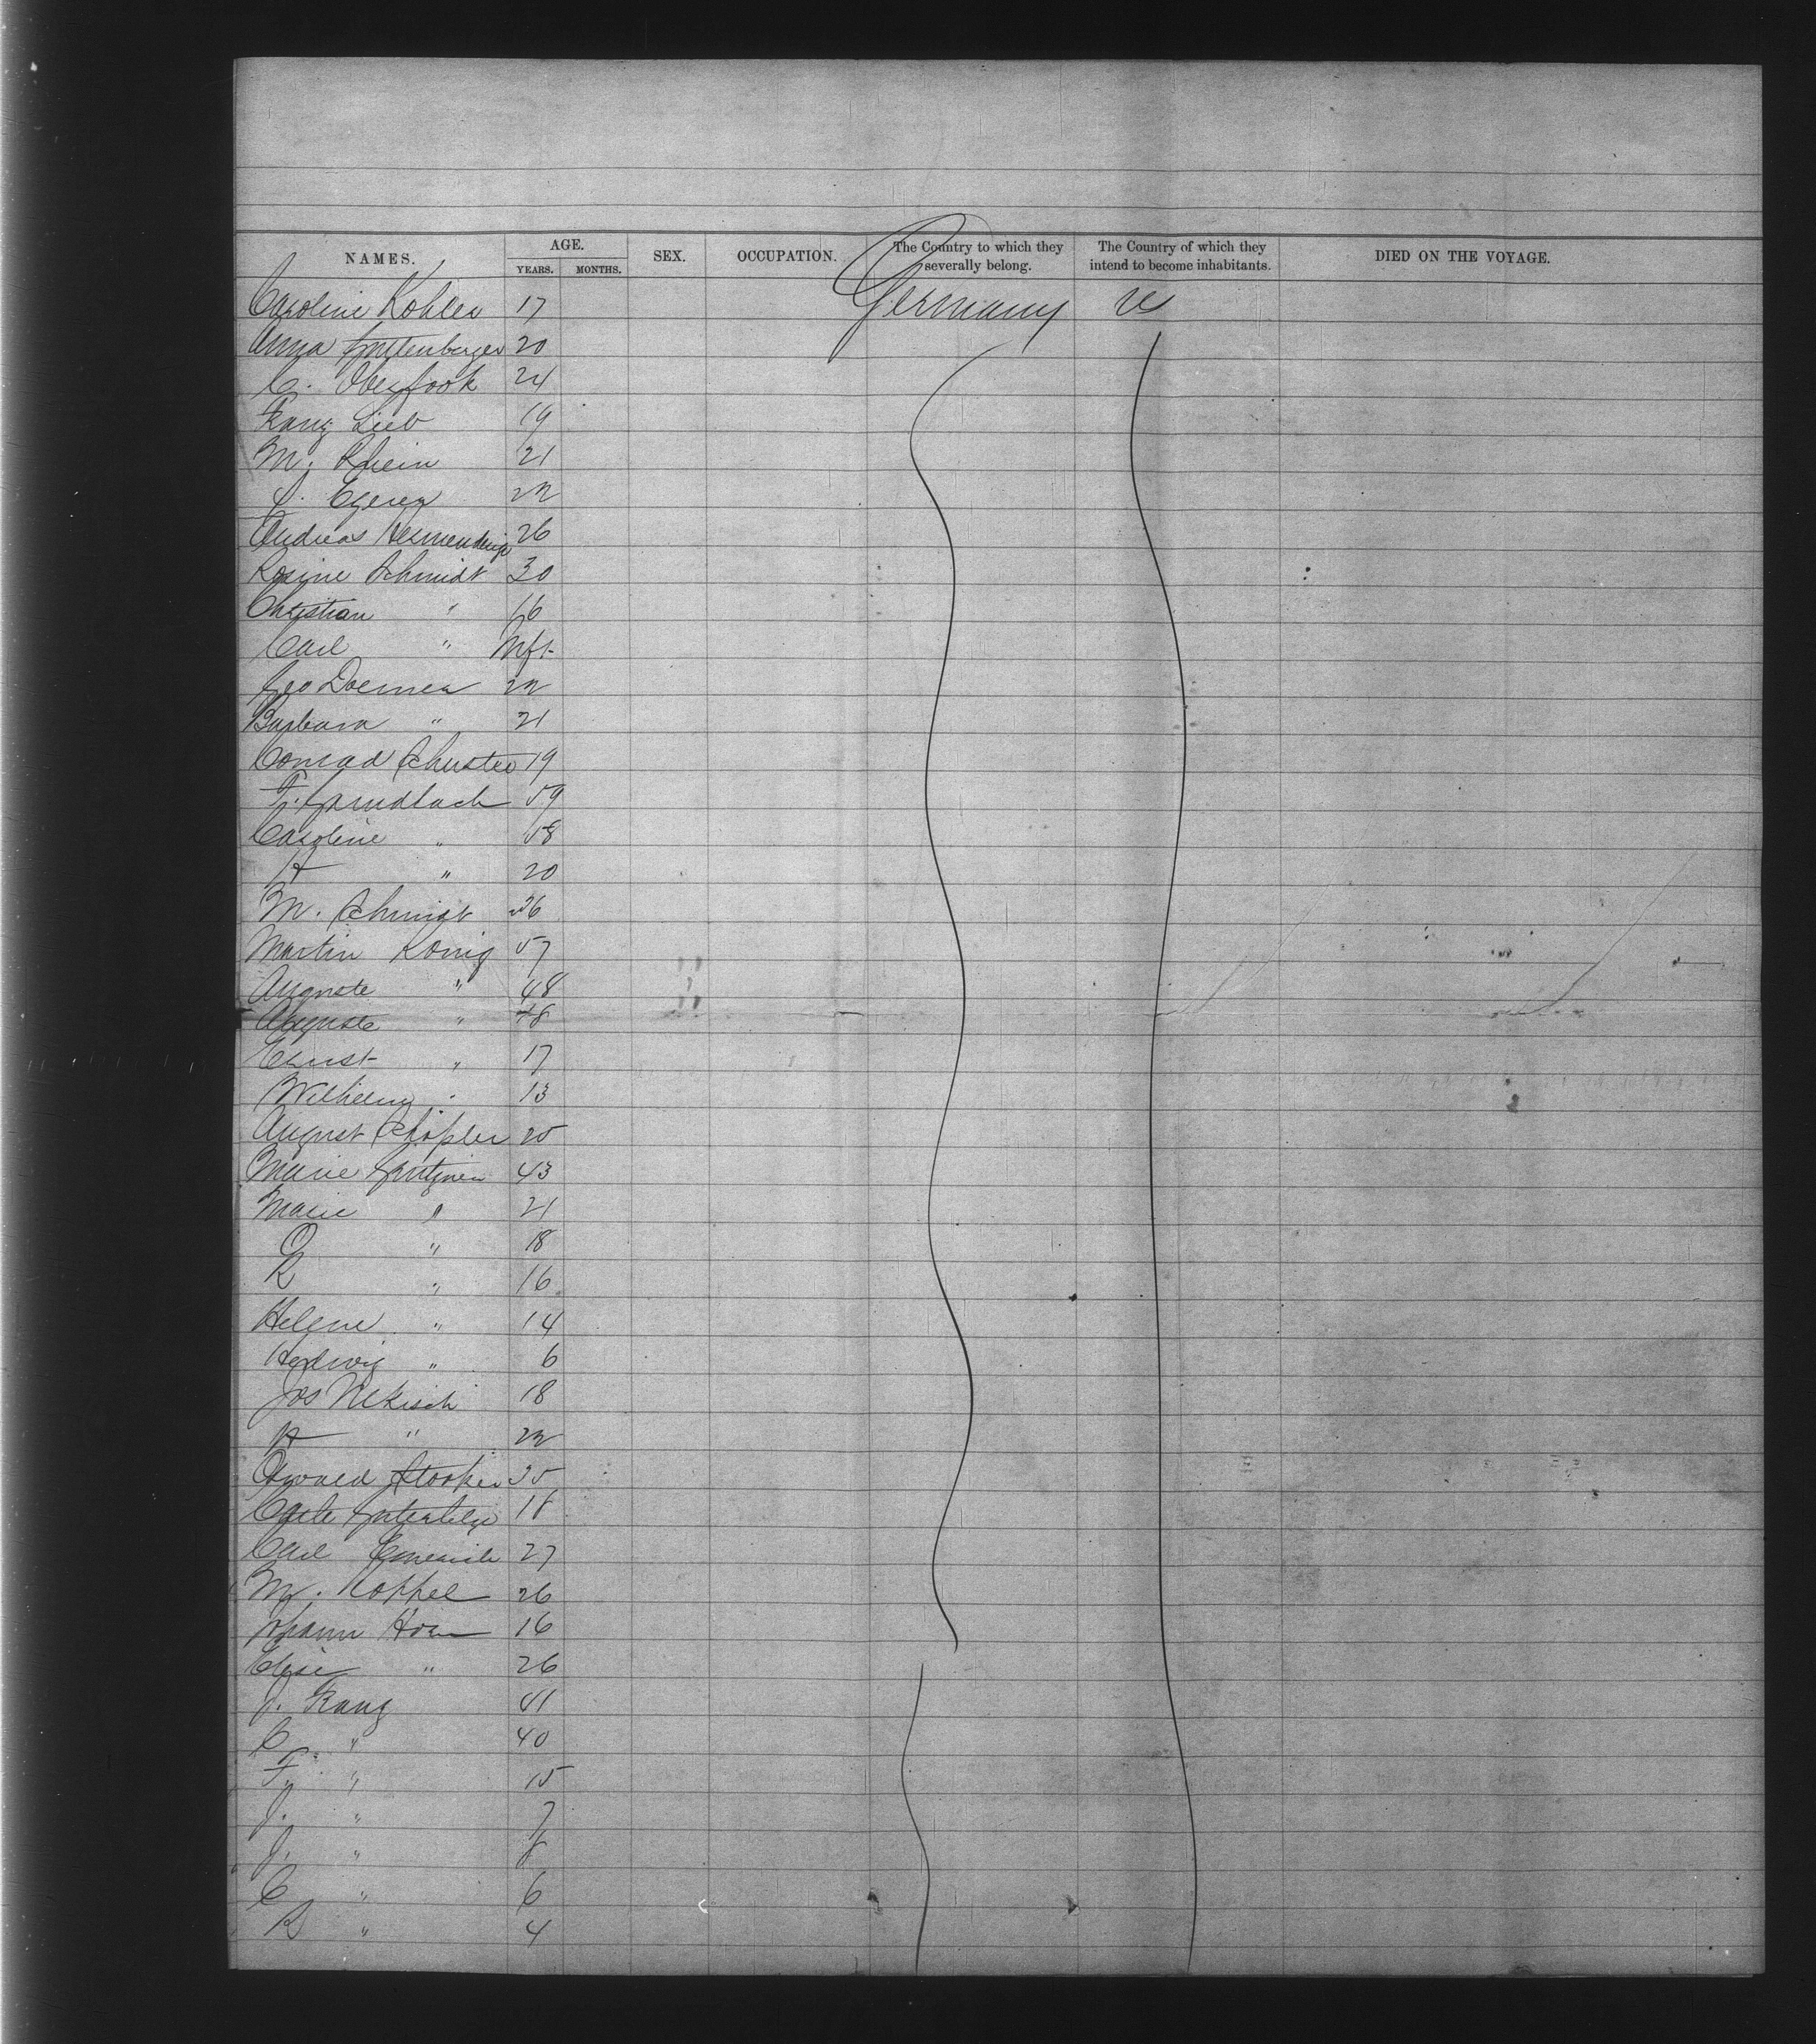 NAMES. AGE. SEX. OCCUPATION. The Country to which they severally belong. The Country of which they intend to become inhabitants. DIED ON THE VOYAGE.
YEARS. MONTHS.
Caroline Kohler 17 Germany US
Anna 20
C. 24
Franz Lieb 19
M. Rhein 21
22
Andreas 26
Rosine Schmidt 30
Christian " 16
Carl " Inft
Geo Doerner 22
Barbara " 21
Conrad Schuster 19
F. Grundbach 59
Caroline " 58
H " 20
M. Schmidt 26
Martin König 57
Auguste " 48
Auguste " 18
Ernst " 17
Wilhelm " 13
August 25
Marie 43
Marie " 21
O " 18
R " 16
Helene " 14
Hedwig " 6
Jos Nikisch 18
H " 22
Oswald 35
18
Carl 27
M. Koppel 26
Johann Horn 16
Elise " 26
J. Franz 41
C. " 40
F. " 15
J. " 7
J. " 8
C " 6
R " 4